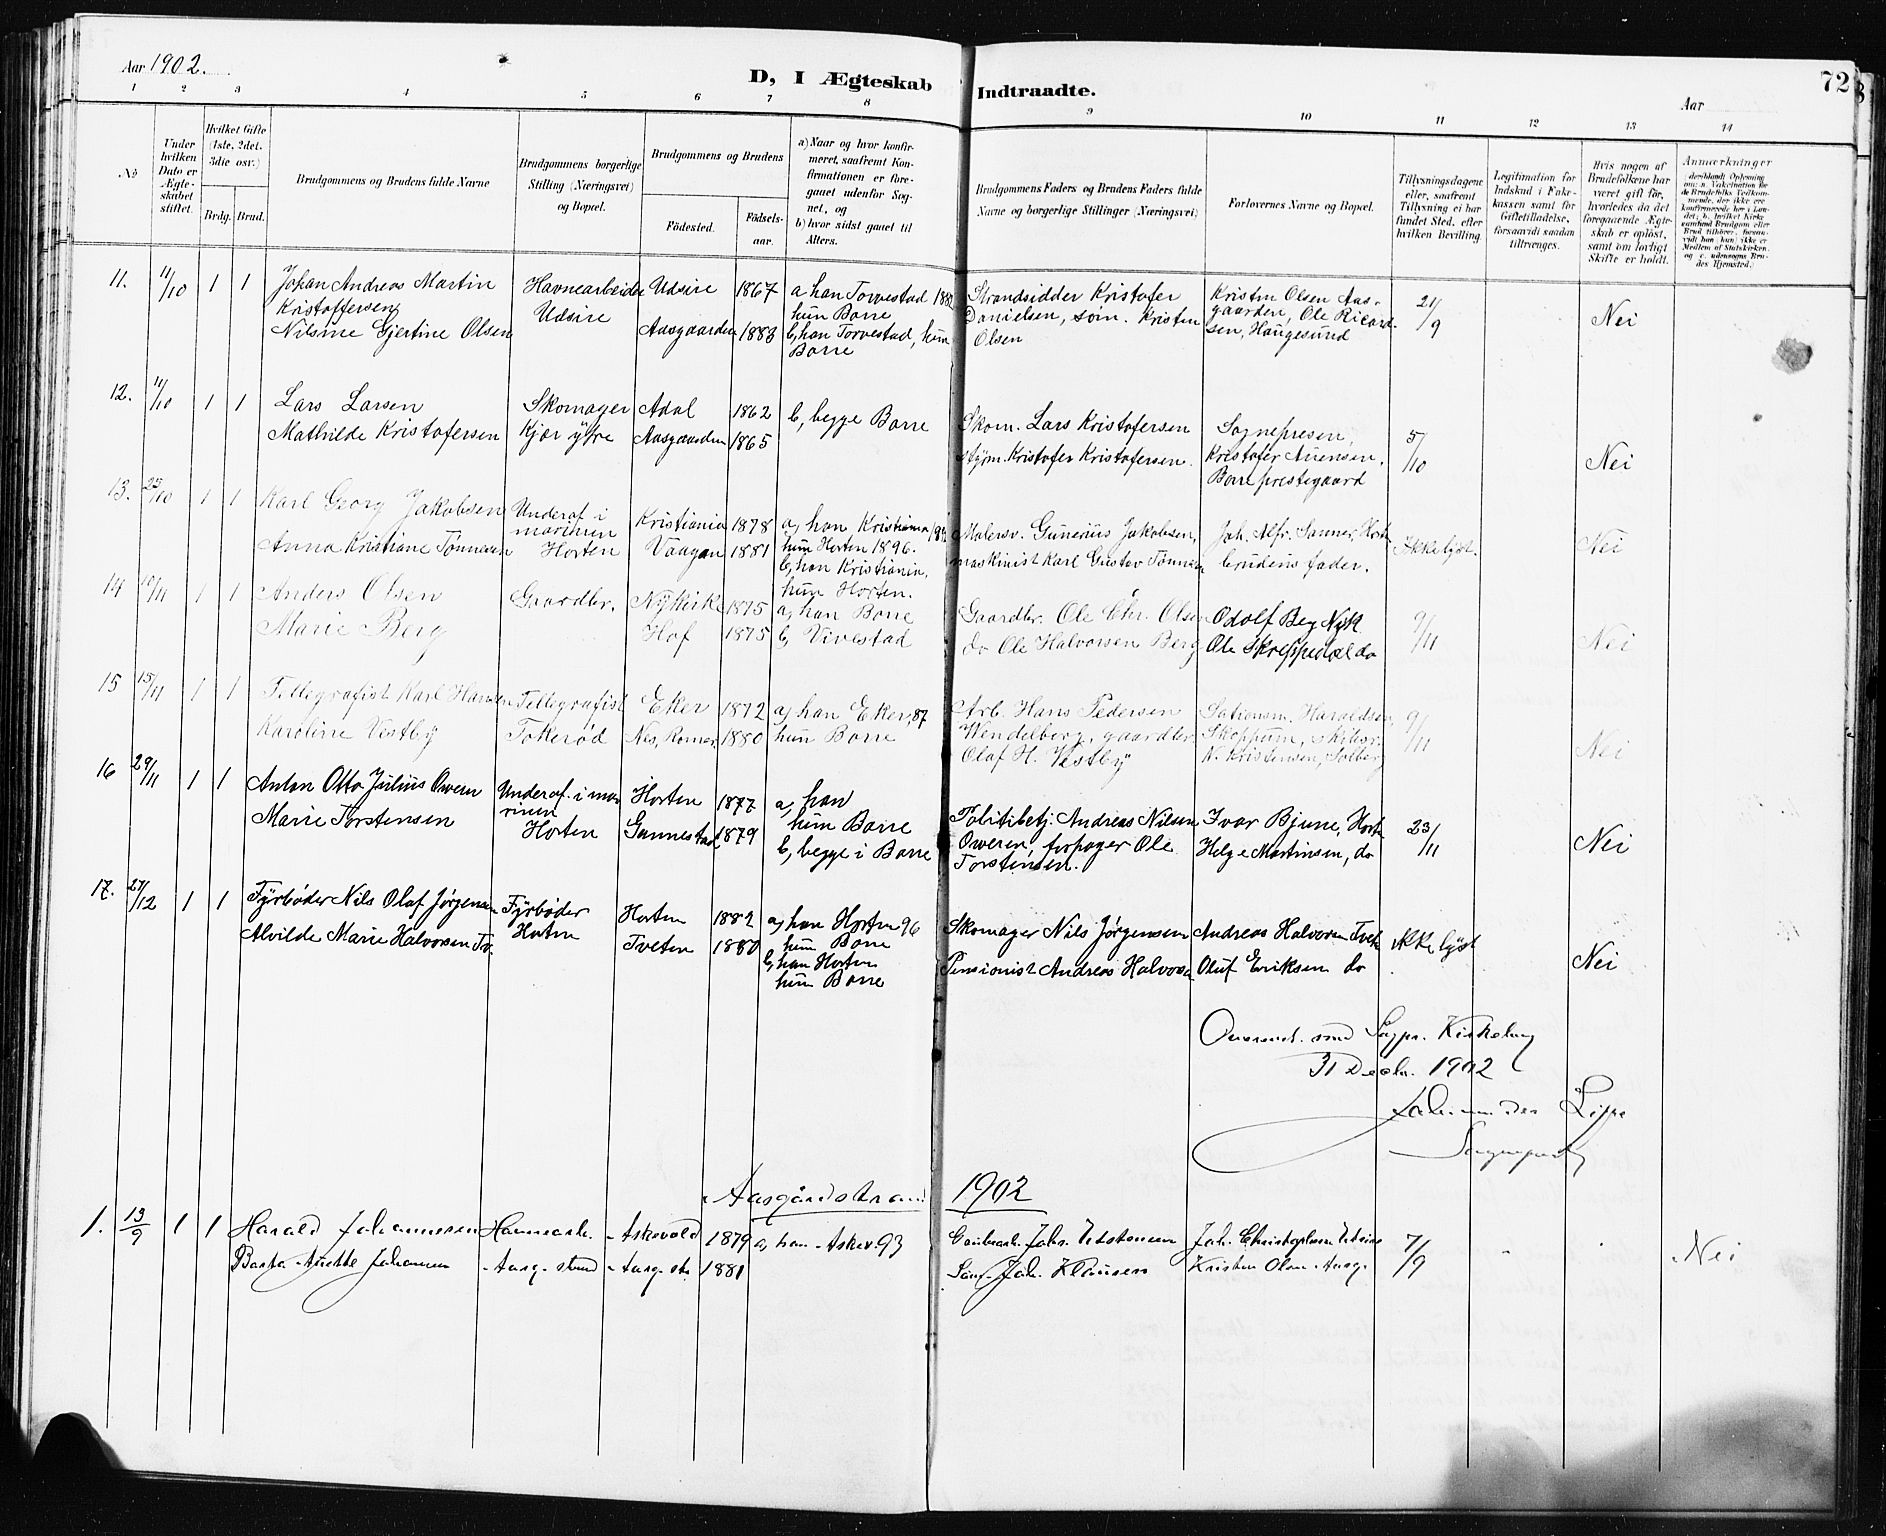 Aar 1902.
D, I Ægteskab Indtraadte.
72
Aar
1 2 3 4 5 6 7 8 9 10 11 12 13 14
No
Under hvilken Dato er Ægteskabet stiftet.
Hvilket Gifte (1ste, 2det, 3die osv.)
Brdg. Brud.
Brudgommens og Brudens fulde Navne
Brudgommens borgerlige Stilling (Næringsvei) og Bopæl.
Brudgommens og Brudens
Fødested.
Fødselsaar.
a) Naar og hvor konfirmeret, saafremt Konfirmationen er foregaaet udenfor Sognet, og
b) hvor sidst gaaet til Alters.
Brudgommens Faders og Brudens Faders fulde Navne og borgerlige Stillinger (Næringsvei)
Forlovernes Navne og Bopæl.
Tillysningsdagene eller, saafremt Tillysning ei har fundet Sted, efter hvilken Bevilling.
Legitimation for Indskud i Enkekassen samt for Giftetilladelse, forsaavidt saadan tiltrænges.
Hvis nogen af Brudefolkene har været gift før, hvorledes da det foregaaende Ægteskab er opløst, samt om lovligt Skifte er holdt.
Anmærkninger
11. 11/10 1 1 Johan Andreas Martin Havnearbeider Udsire 1867 a han Torvestad 1882 Strandsidder Kristofer Kristen Olsen Aas- 21/9 Nei
Kristoffersen Udsire hun Borre Danielsen, søm. Kristen gaarden, Ole Ricard-
Nilsine Gjertine Olsen Aasgaarden 1883 b, han Torvestad, hun Olsen sen, Haugesund
Borre
12. 11/10 1 1 Lars Larsen Skomager Adal 1862 b, begge Borre Skom. Lars Kristofersen Sognepresen, 5/10 Nei
Mathilde Kristofersen Kjær Aasgaarden 1865 styrm. Kristofer Kristofersen. Kristofer
Borre prestegaard
13. 25/10 1 1 Karl Georg Jakobsen Underof i Kristiania 1878 a, han Kristiania Malersv. Gunerius Jakobsen, Joh. Alfr. Sanner, Ikke lyst. Nei
marinen hun Horten 1896.
Anna Kristiane Tønnesen Horten Vaagan 1881 b, han Kristiania, maskinist Karl Gustav Tønnesen brudens fader.
hun Horten.
14 10/11 1 1 Anders Olsen Gaardbr. Nykirke 1875 a, han Borre Gaardbr. Ole Chr. Olsen Odolf Berg Nyk 9/11 Nei
Marie Berg Hof 1875 b, Vivestad do Ole Halvorsen Berg Ole Skreppedal do
15 15/11 1 1 Tellegrafist Karl Hansen Tellegrafist Eker 1872 a, han Eker, 87 Arb. Hans Pedersen Haraldsen, 9/11 Nei
Karoline Vestby Tokerød Nes, Romer. 1880 hun Borre Wendelberg, gaardbr. Skoppum,
Olaf H. Vestby N. Kristensen, Solberg
16 29/11 1 1 Anton Otto Julius Oweren Underof. i ma- Horten 1877 a, han Politibetj. Andreas Nilsen Ivar Bjune, Horten 23/11 Nei
rinen hun Borre
Marie Torstensen Horten Gannestad 1879 b, begge i Borre Oweren, forpagter Ole Helge Martinsen, do
Torstensen.
17. 27/12 1 1 Fyrbøder Nils Olaf Jørgensen Fyrbøder Horten 1882 a, han Horten 96 Skomager Nils Jørgensen Andreas Halvorsen Tveten ikke lyst Nei
Alvilde Marie Halvorsen Tv. Horten Tveten 1880 hun Borre Pensionist Andreas Halvorsen Oluf Eriksen do
b, han Horten
hun Borre
Overenst. med Sogpr. Kirkebog
31 Decbr. 1902
Sognepræst
Aasgårdstrand 1902
1. 13/9 1 1 Harald Johannesen Havnearb. Askevold 1879 a, han Askev. 93 Joh. Christophersen Utsire 7/9 Nei
Johansen Aasg. strand Aasg. str. 1881 Joh. Klausen Kristen Olsen Aasg.